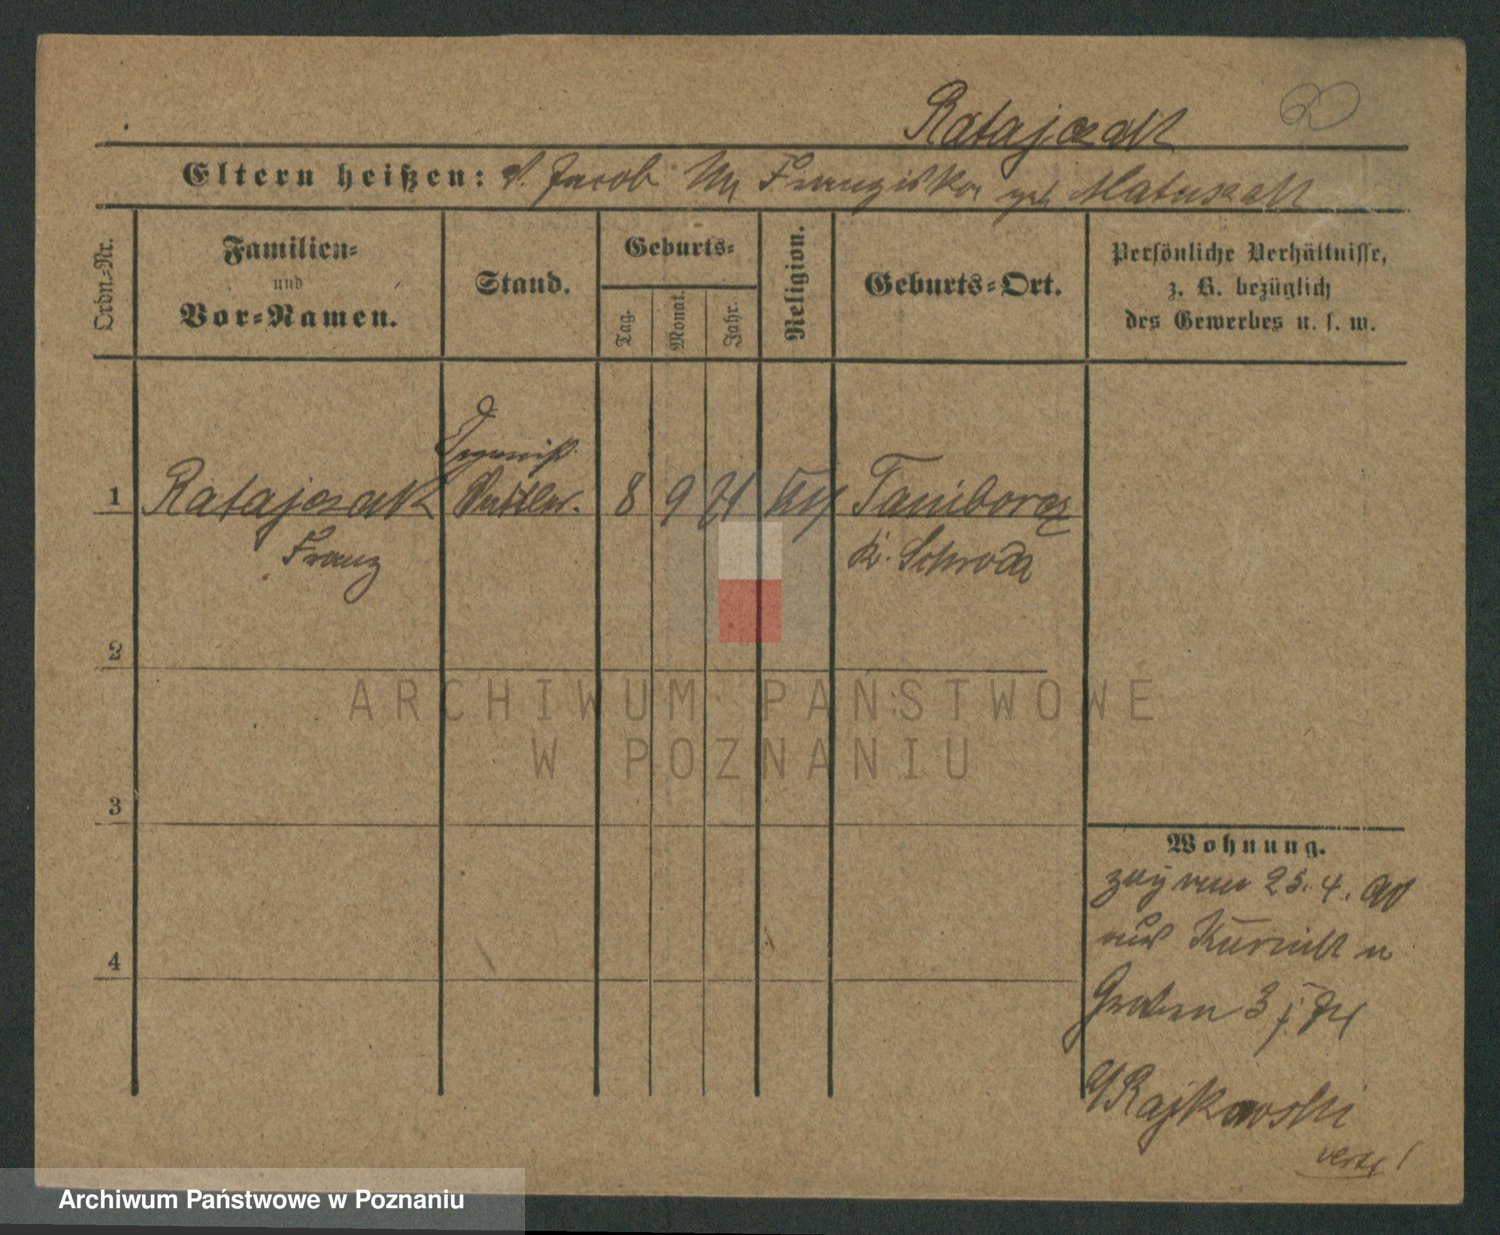 Ratajczak
Eltern heißen: V. Jacob Mu Franziska geb Matuszak
Ordn.-Nr.
Familien-
und
Vor-Namen.
Stand.
Geburts-
Tag.
Monat.
Jahr.
Religion.
Geburts-Ort.
Persönliche Verhältnisse,
z. B. bezüglich
des Gewerbes u. s. w.
1 Ratajczak Sattler. 8 9 71 kth Taniborz
Franz
Kr. Schroda
2
3
4
Wohnung.
zog vom 25. 4. 90
aus Kurnik n
Graben 3 j.
Rajkowski
vert!
ARCHIWUM PAŃSTWOWE
W POZNANIU
Archiwum Państwowe w Poznaniu